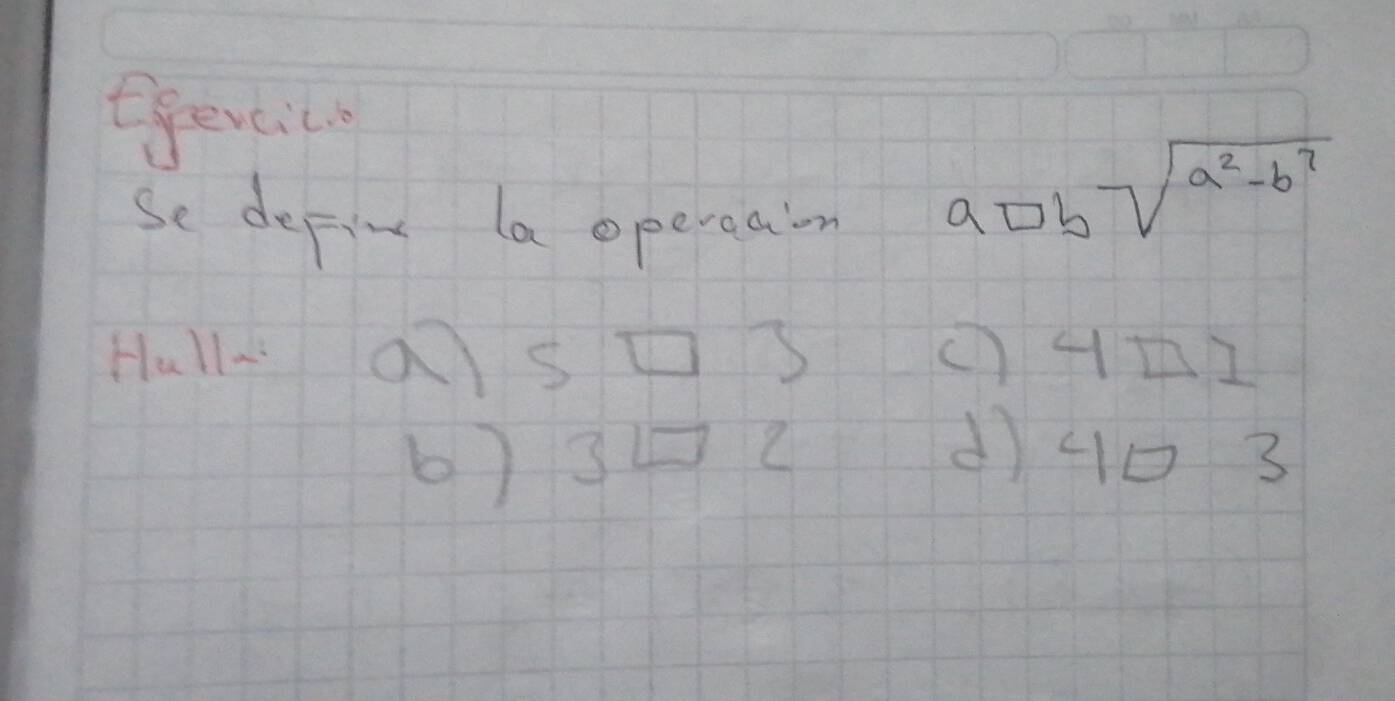 Ejercicio
Se define la operación a□b √a²-b²
Halla:
a) 5 □ 3 c) 4 □ 1
b) 3 □ 2 d) 4 □ 3